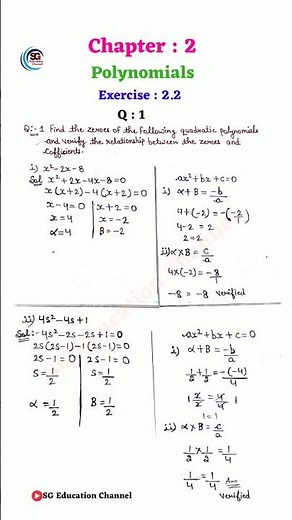 SG
Chapter : 2
Polynomials
Exercise : 2.2
Q : 1
Q:-1 Find the zeroes of the following quadratic polynomials
and verify the relationship between the zeroes and
cofficients.
i) x²-2x-8
Sol x²+2x-4x-8=0
x(x+2)-4(x+2)=0
x-4=0 | x+2=0
x=4 | x=-2
α=4 | B=-2
ax²+bx+c=0
i) α+B=-b/a
4+(-2)=-(-2/1)
4-2=2
2=2
ii) α×B=c/a
4×(-2)=-8/1
-8=-8 verified
ii) 4s²-4s+1
Sol:-4s²-2s-2s+1=0
2s(2s-1)-1(2s-1)=0
2s-1=0 | 2s-1=0
s=1/2 | s=1/2
α=1/2 | B=1/2
ax²+bx+c=0
i) α+B=-b/a
1/2+1/2=-(-4)/4
1 2/2=4/4 1
1=1
ii) α×B=c/a
1/2×1/2=1/4
1/4=1/4 Ans
verified
SG Education Channel